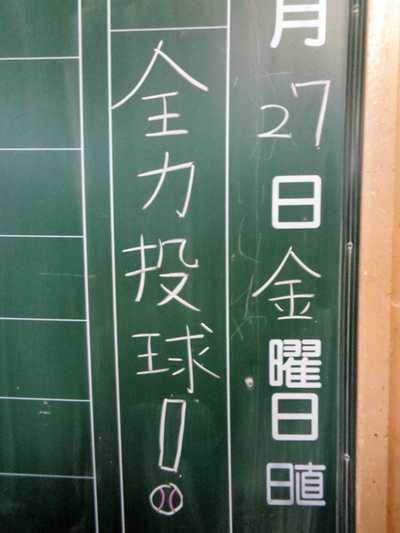 月27日金曜日
日直
全力投球!